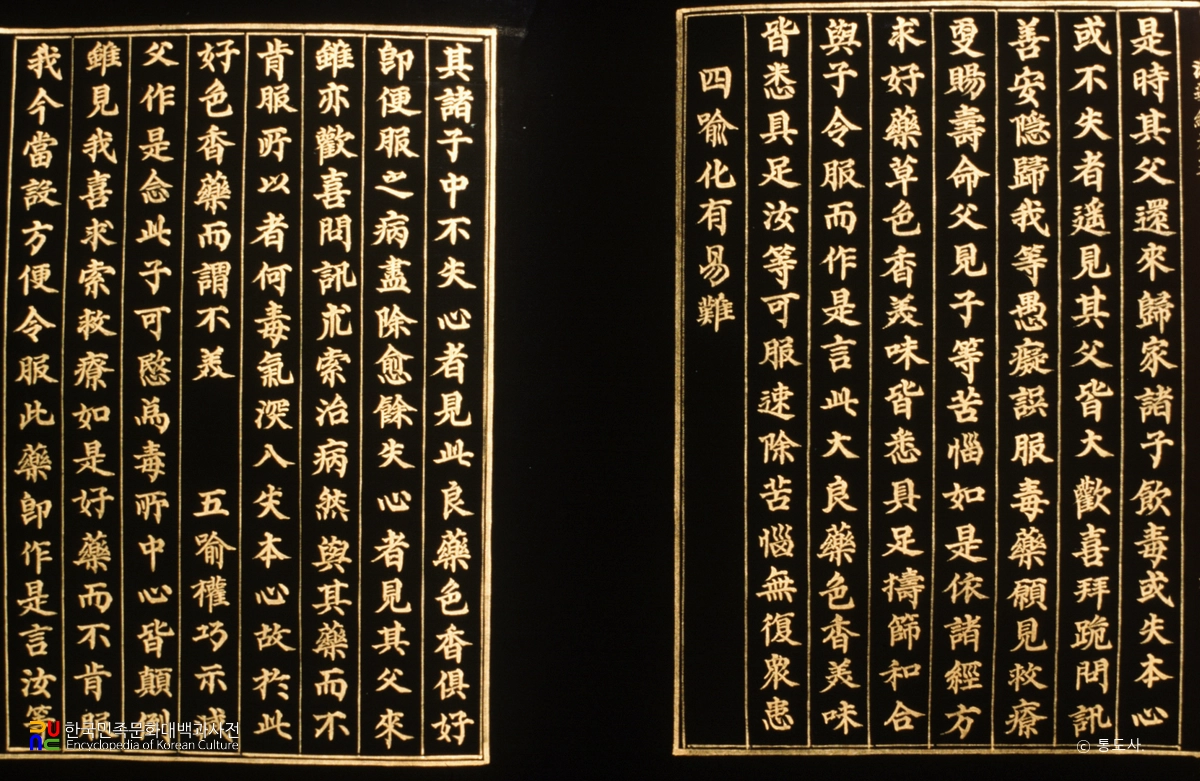 是時其父還來歸家諸子飮毒或失本心
或不失者遥見其父皆大歡喜拜跪問訊
善安隐歸我等愚癡誤服毒藥願見救療
更賜壽命父見子等苦惱如是依諸經方
求好藥草色香美味皆悉具足擣篩和合
與子令服而作是言此大良藥色香美味
皆悉具足汝等可服速除苦惱無復衆患
四喻化有易難
其諸子中不失心者見此良藥色香俱好
卽便服之病盡除愈餘失心者見其父來
雖亦歡喜問訊求索治病然與其藥而不
肯服所以者何毒氣深入失本心故於此
好色香藥而謂不美 五喻權巧示滅
父作是念此子可愍爲毒所中心皆顛倒
雖見我喜求索救療如是好藥而不肯服
我今當設方便令服此藥卽作是言汝等
한국민족문화대백과사전
Encyclopedia of Korean Culture
© 통도사